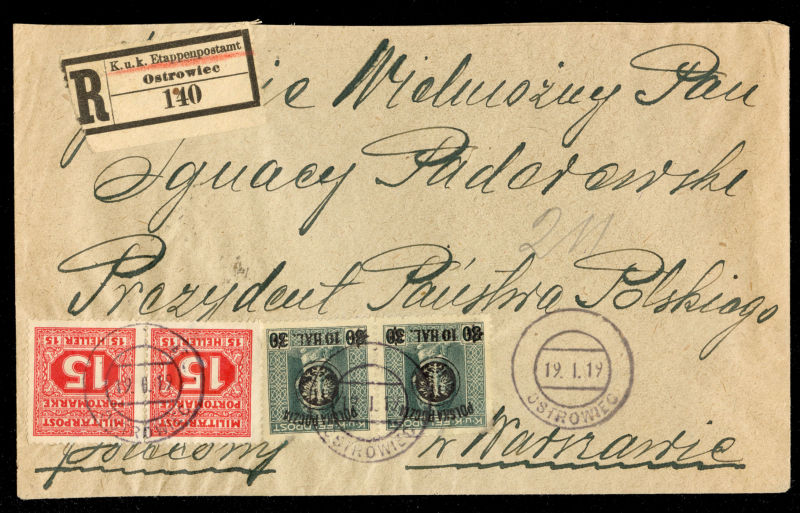 K.u.k. Etappenpostamt
Ostrowiec
R
140
Wielmożny Pan
Ignacy Paderewski
211
Prezydent Państwa Polskiego
polecony
w Warszawie
15 HELLER 15
15
PORTOMARKE
MILITARPOST
15 HELLER 15
15
PORTOMARKE
MILITARPOST
30 10 HAL. 30
POLSKA POCZTA
K.u.K. FELDPOST
30 10 HAL. 30
POLSKA POCZTA
K.u.K. FELDPOST
19. I. 19
OSTROWIEC
OSTROWIEC
19. I. 19
OSTROWIEC